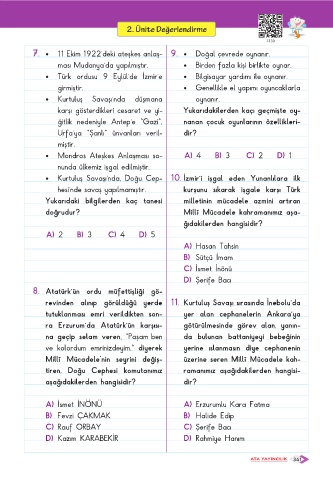 2. Ünite Değerlendirme
7. • 11 Ekim 1922'deki ateşkes anlaş-
ması Mudanya'da yapılmıştır.
• Türk ordusu 9 Eylül'de İzmir'e
girmiştir.
• Kurtuluş Savaşı'nda düşmana
karşı gösterdikleri cesaret ve yi-
ğitlik nedeniyle Antep'e "Gazi",
Urfa'ya "Şanlı" ünvanları veril-
miştir.
• Mondros Ateşkes Anlaşması so-
nunda ülkemiz işgal edilmiştir.
• Kurtuluş Savaşı'nda, Doğu Cep-
hesi'nde savaş yapılmamıştır.
Yukarıdaki bilgilerden kaç tanesi
doğrudur?
A) 2 B) 3 C) 4 D) 5
8. Atatürk'ün ordu müfettişliği gö-
revinden alınıp görüldüğü yerde
tutuklanması emri verildikten son-
ra Erzurum'da Atatürk'ün karşısı-
na geçip selam veren, "Paşam ben
ve kolordum emrinizdeyim." diyerek
Millî Mücadele'nin seyrini değiş-
tiren, Doğu Cephesi komutanımız
aşağıdakilerden hangisidir?
A) İsmet İNÖNÜ
B) Fevzi ÇAKMAK
C) Rauf ORBAY
D) Kazım KARABEKİR
9. • Doğal çevrede oynanır.
• Birden fazla kişi birlikte oynar.
• Bilgisayar yardımı ile oynanır.
• Genellikle el yapımı oyuncaklarla
oynanır.
Yukarıdakilerden kaçı geçmişte oy-
nanan çocuk oyunlarının özellikleri-
dir?
A) 4 B) 3 C) 2 D) 1
10. İzmir'i işgal eden Yunanlılara ilk
kurşunu sıkarak işgale karşı Türk
milletinin mücadele azmini artıran
Millî Mücadele kahramanımız aşa-
ğıdakilerden hangisidir?
A) Hasan Tahsin
B) Sütçü İmam
C) İsmet İnönü
D) Şerife Bacı
11. Kurtuluş Savaşı sırasında İnebolu'da
yer alan cephanelerin Ankara'ya
götürülmesinde görev alan, yanın-
da bulunan battaniyeyi bebeğinin
yerine ıslanmasın diye cephanenin
üzerine seren Millî Mücadele kah-
ramanımız aşağıdakilerden hangisi-
dir?
A) Erzurumlu Kara Fatma
B) Halide Edip
C) Şerife Bacı
D) Rahmiye Hanım
ATA YAYINCILIK 341